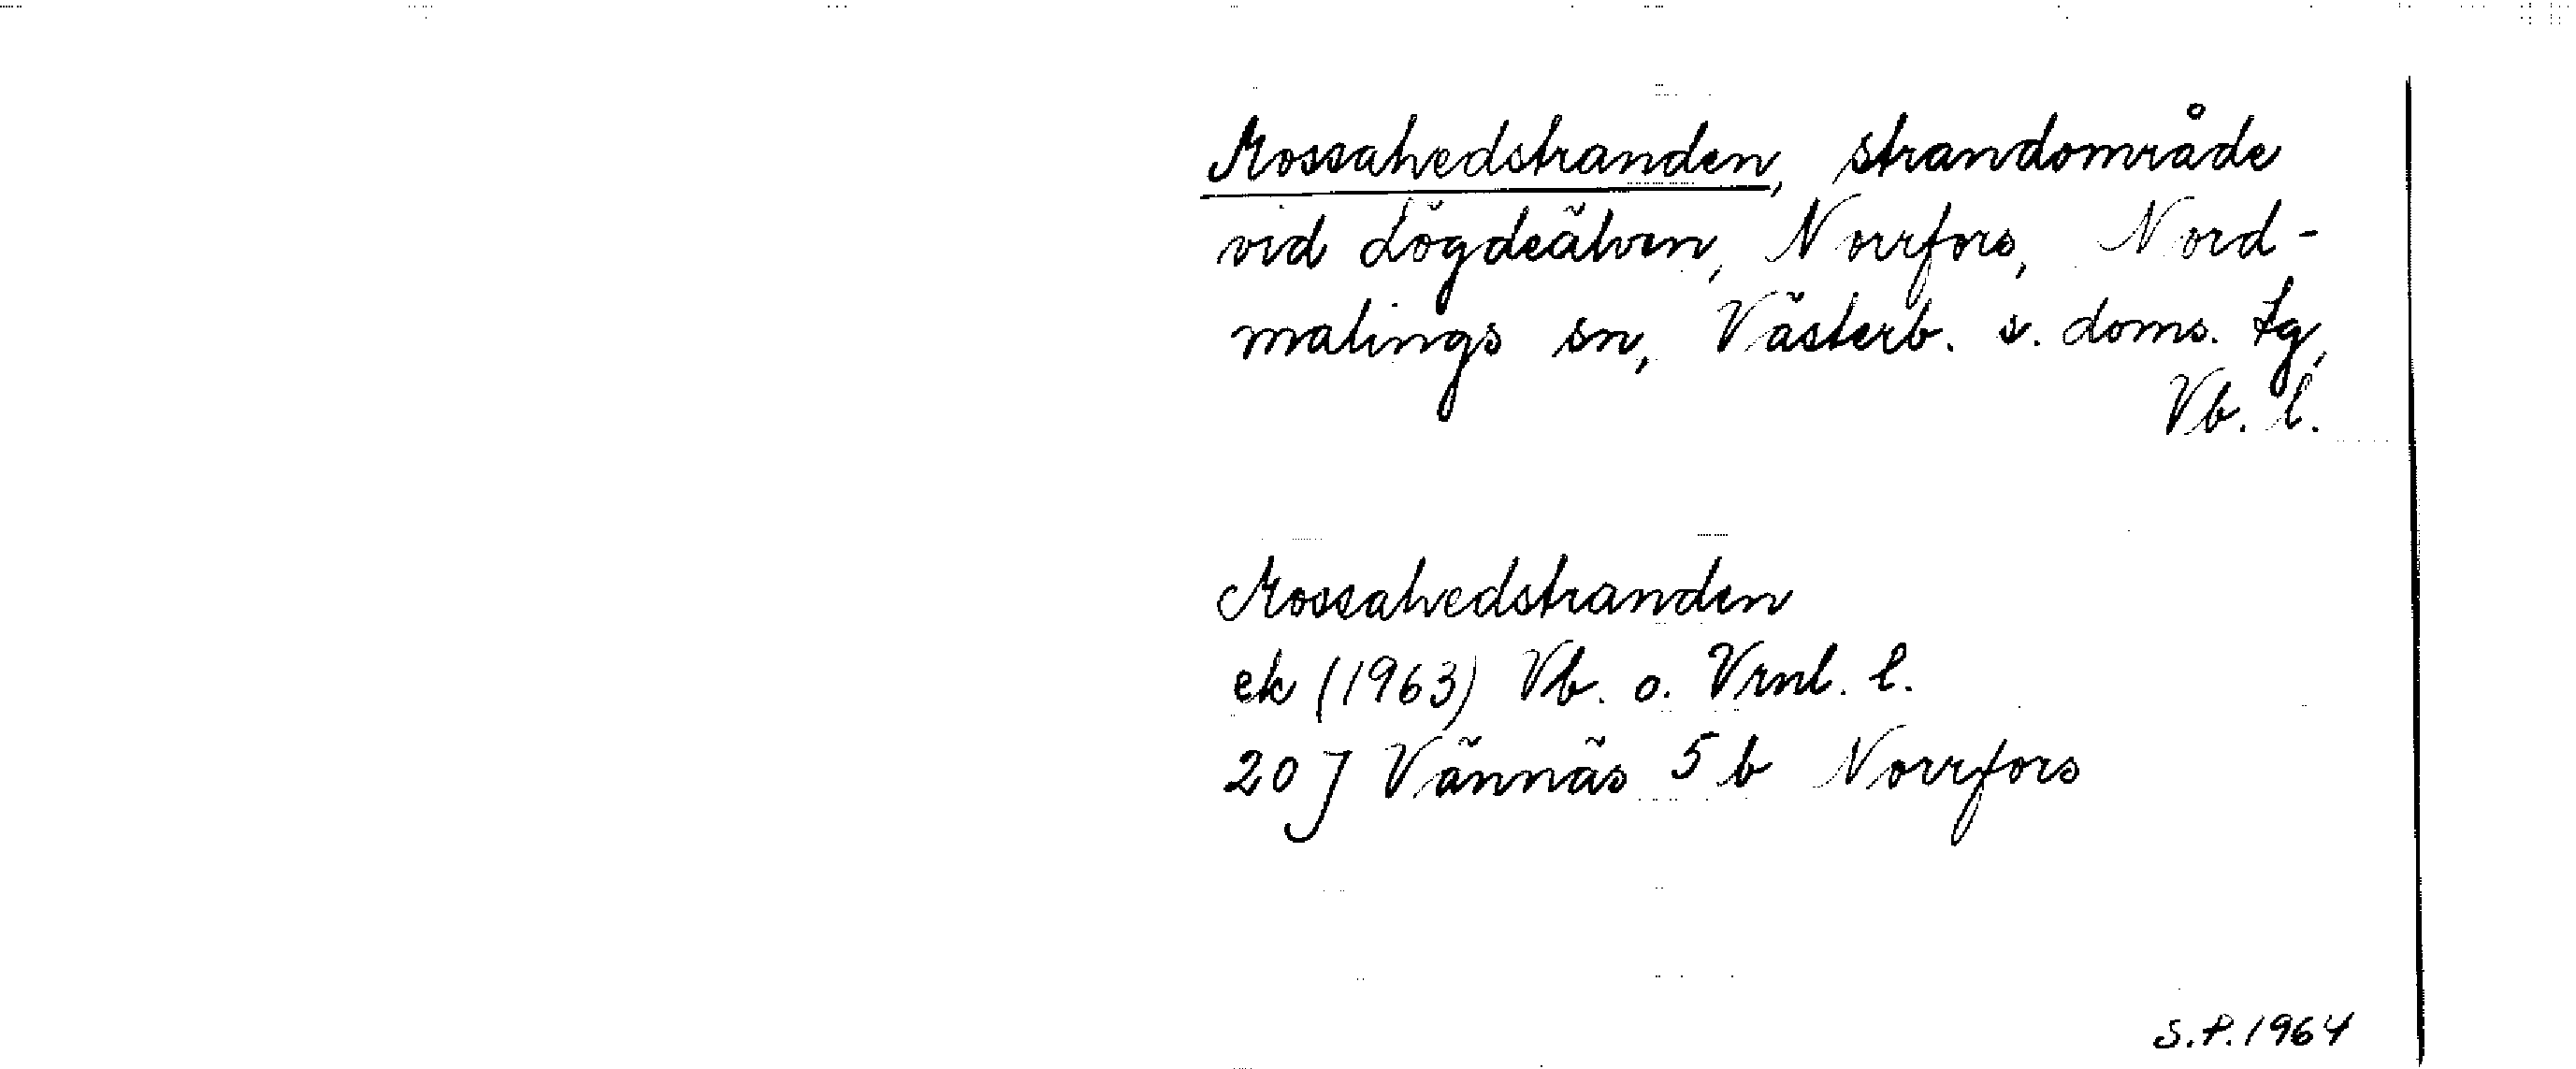 Mossahedstranden, strandområde
vid Lögdeälven, Norrfors, Nord-
malings sn, Västerb. s. doms. tg,
Vb. l.
Mossahedstranden
ek (1963) Vb. o. Vrnl. l.
20 J Vännäs 5 b Norrfors
S.P. 1964